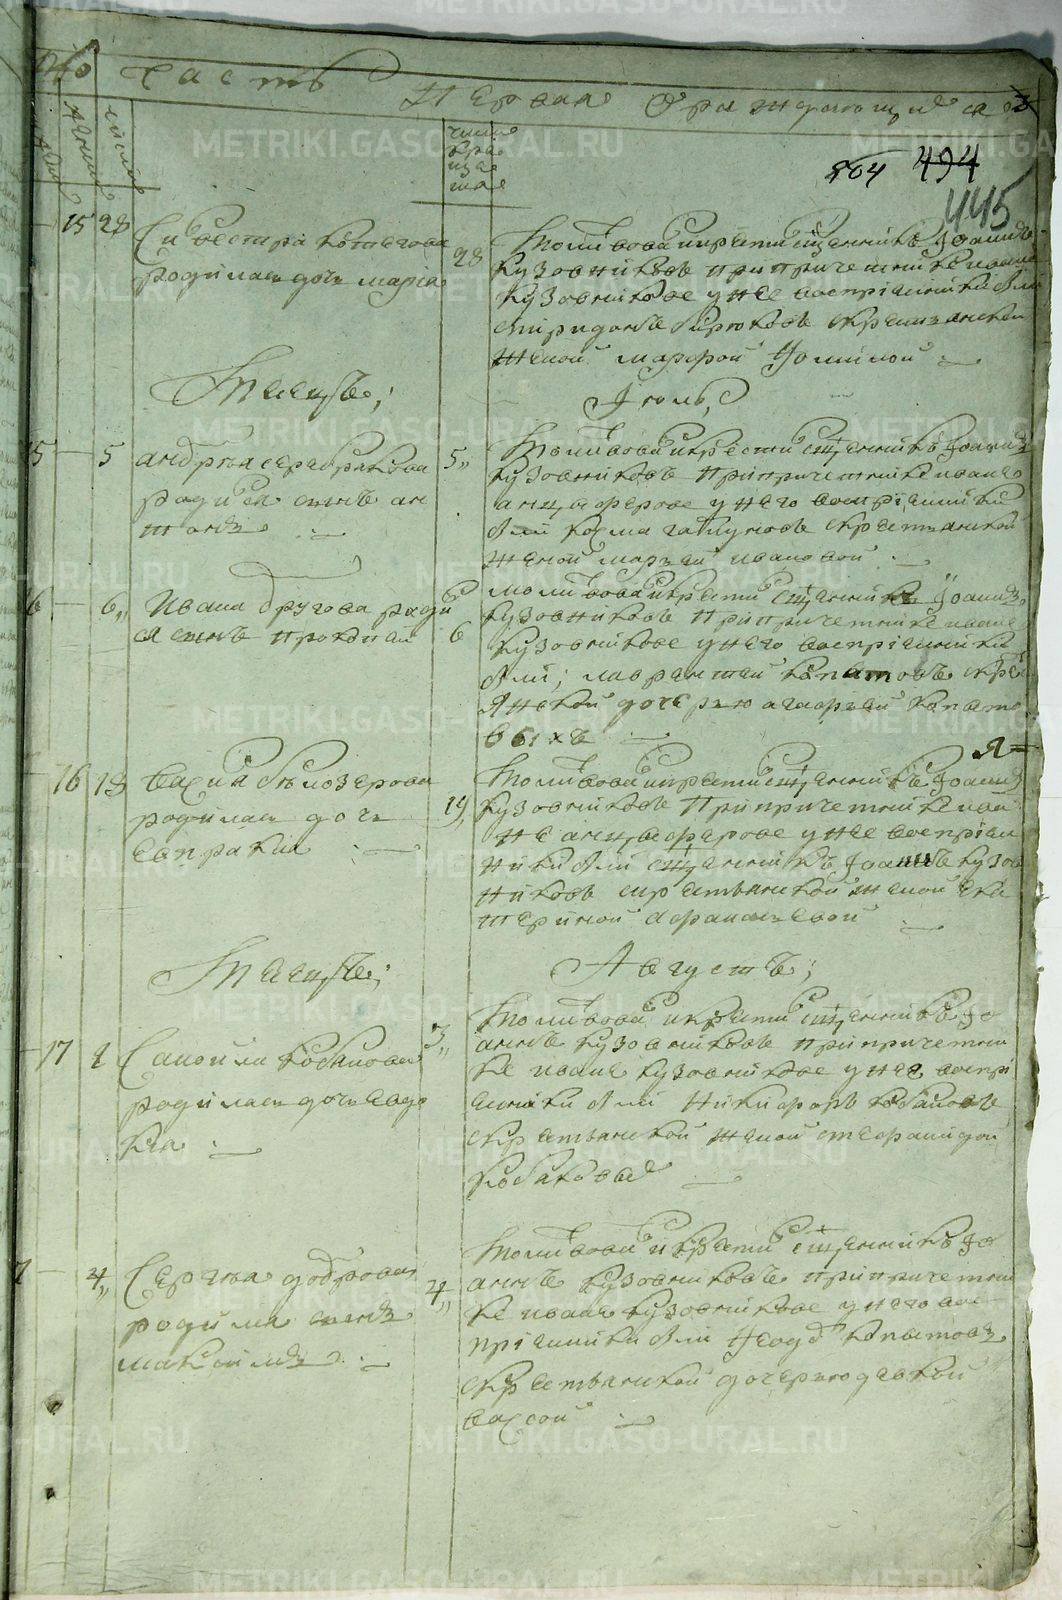 Часть Первая О раждающихся
числа
кре
ще
ния
804 494
445
15 28 Сивестра котегова
родилась дочь мария
28 Молитвовал и крестил священникъ Иоаннъ
кузовниковъ при причетнике иване
кузовникове у нее восприемники были
спиридонъ бирюковъ с крестьянской
женой марфой Фоминой
Месяцъ; Июль,
5 5 андрея серебрякова
родился сынъ ан
тонъ
5 Молитвовал и крестил священникъ Иоаннъ
кузовниковъ при причетнике иване
анцыферове у него восприемники
были косма галунов с крестьянской
женой марьей ивановой
6 6 Ивана другова родил
ся сынъ прокопий
6 молитвовал и крестил священникъ Иоаннъ
кузовниковъ при причетнике иване
кузовникове у него восприемники
были; лаврентий копытовъ с крес
янской дочерью агафьей копыто
выхъ
16 18 василья белозерова
родилась дочь
евпраксия
19 Молитвовал и крестил священникъ Иоаннъ
кузовниковъ при причетнике ива
не анцыферове у нее восприем
ники были священникъ Иоаннъ кузов
никовъ с крестьянской женой ека
териной афанасьевой
Месяцъ; Августъ;
17 1 Самойла кобякова
родилась дочь евдо
кия
3 Молитвовал и крестил священникъ Ио
аннъ кузовниковъ при причетни
ке иване кузовникове у нея воспри
емники были никифоръ кобяковъ
с крестьянской женой стефанидой
кобяковых
7 4 Сергея доброва
родился сынъ
максимъ
4 Молитвовал и крестил священникъ Ио
аннъ кузовниковъ при причетни
ке иване кузовникове у него вос
приемники были Феодор копытовъ
с крестьянской дочерью девкой
вассой
METRIKI.GASO-URAL.RU